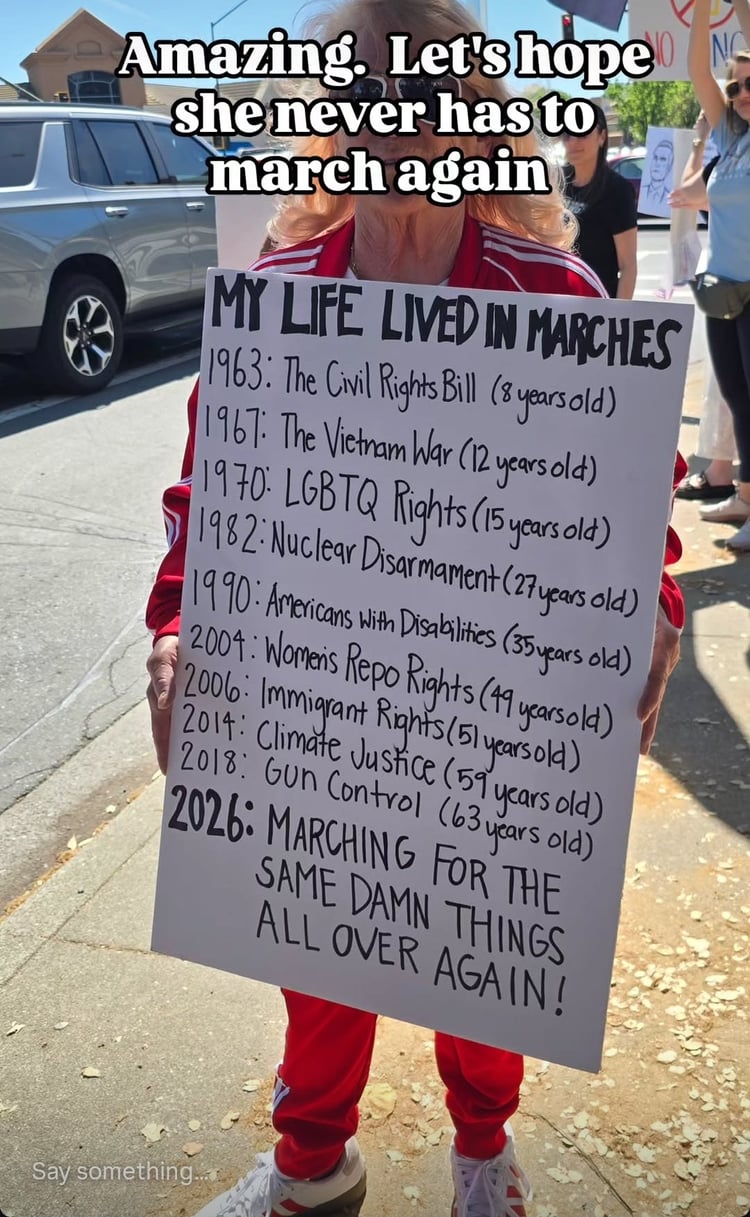 Amazing. Let's hope
she never has to
march again
NO
MY LIFE LIVED IN MARCHES
1963: The Civil Rights Bill (8 years old)
1967: The Vietnam War (12 years old)
1970: LGBTQ Rights (15 years old)
1982: Nuclear Disarmament (27 years old)
1990: Americans with Disabilities (35 years old)
2004: Women's Repo Rights (49 years old)
2006: Immigrant Rights (51 years old)
2014: Climate Justice (59 years old)
2018: Gun Control (63 years old)
2026: MARCHING FOR THE
SAME DAMN THINGS
ALL OVER AGAIN!
Say something...